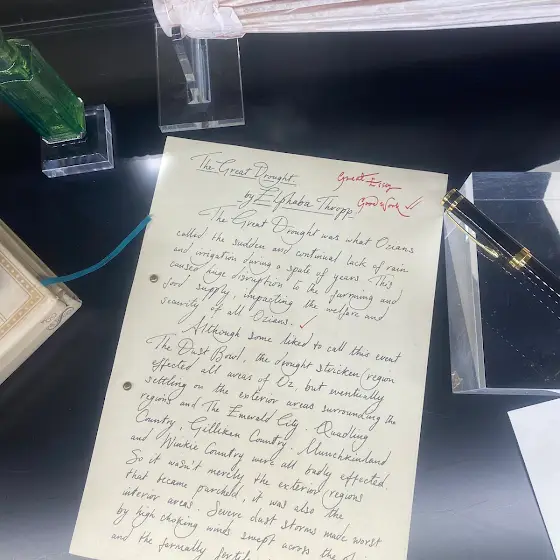 The Great Drought
by Elphaba Thropp
Great Essay
Good work ✓
The Great Drought was what Ozians
called the sudden and continual lack of rain
and irrigation during a spate of years. This
caused huge disruption to the farming and
food supply, impacting the welfare and
security of all Ozians. ✓
Although some liked to call this event
The Dust Bowl, the drought stricken region
effected all areas of Oz, but eventually
settling on the exterior areas surrounding the
regions and The Emerald City. Quadling
Country, Gilliken Country, Munchkinland
and Winkie Country were all badly effected.
So it wasn't merely the exterior regions
that became parched, it was also the
interior areas. Severe dust storms made worst
by high choking winds swept across the
and the formally